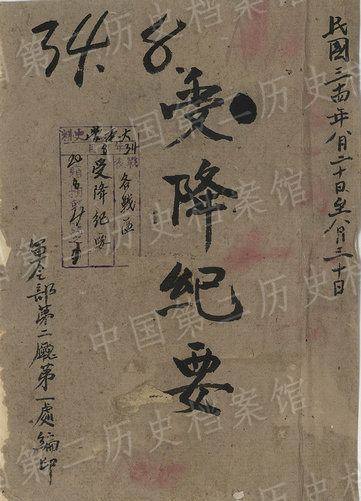 民國三十四年八月二十日至八月三十日
34.8.
受降紀要
各戰區
受降紀要
軍令部第二廳第一處編印
中国第二历史档案馆